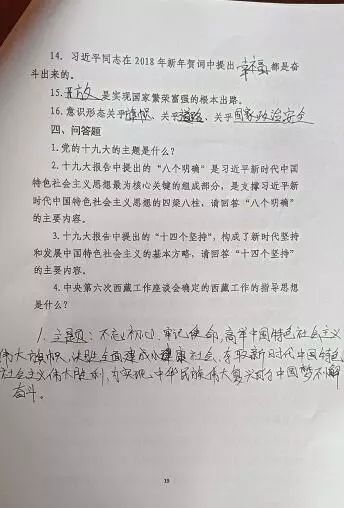 14. 习近平同志在 2018 年新年贺词中提出 幸福 都是奋
斗出来的。
15. 开放 是实现国家繁荣富强的根本出路。
16. 意识形态关乎旗帜、关乎道路、关乎国家政治安全
四、问答题
1. 党的十九大的主题是什么？
2. 十九大报告中提出的“八个明确”是习近平新时代中国
特色社会主义思想最为核心关键的组成部分，是支撑习近平新
时代中国特色社会主义思想的四梁八柱，请回答“八个明确”
的主要内容。
3. 十九大报告中提出的“十四个坚持”，构成了新时代坚持
和发展中国特色社会主义的基本方略，请回答“十四个坚持”
的主要内容。
4. 中央第六次西藏工作座谈会确定的西藏工作的指导思想
是什么？
1. 主题：不忘初心，牢记使命，高举中国特色社会主义
伟大旗帜，决胜全面建成小康社会，夺取新时代中国特色
社会主义伟大胜利，为实现中华民族伟大复兴的中国梦不懈
奋斗。
19